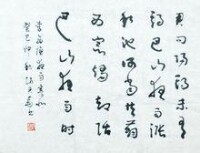 君问归期未有
期巴山夜雨涨
秋池何当共剪
西窗烛却话
巴山夜雨时
李商隐夜雨寄北
癸巳仲秋